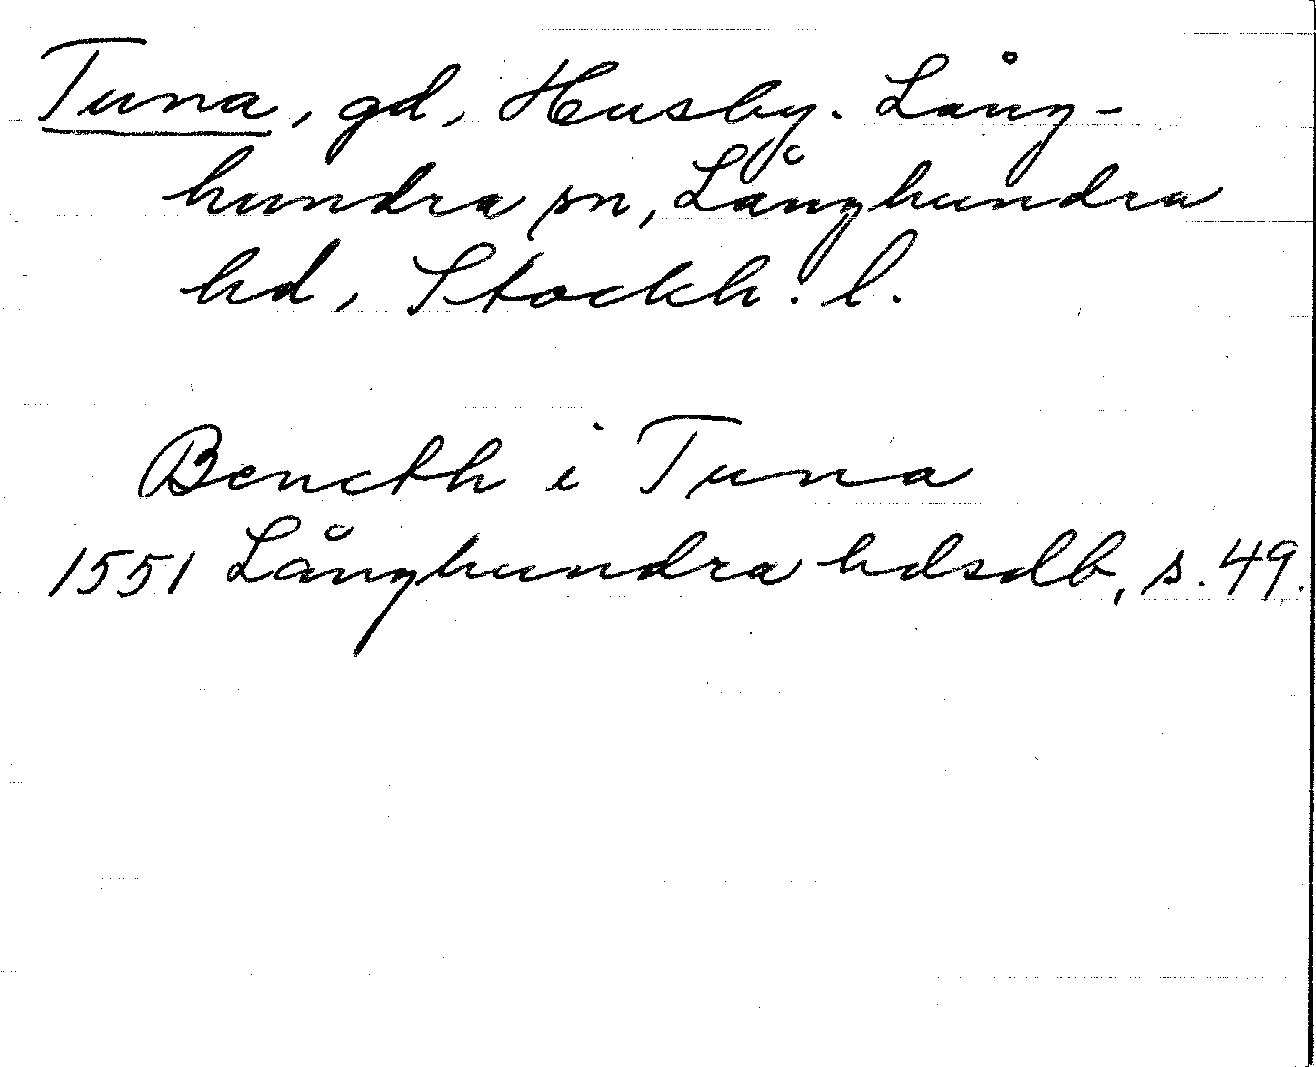 Tuna, gd, Husby-Lång-
hundra sn, Långhundra
hd, Stockh. l.
Bencth i Tuna
1551 Långhundra hdsdb, s. 49.